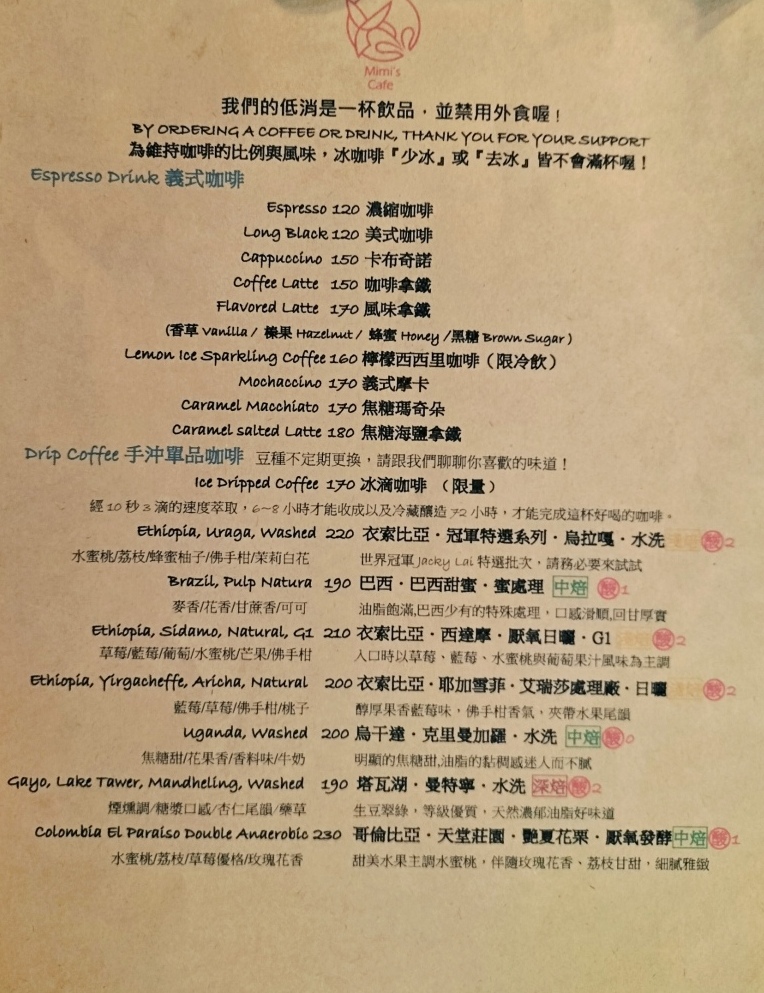 Mimi's
Cafe
我們的低消是一杯飲品，並禁用外食喔！
BY ORDERING A COFFEE OR DRINK, THANK YOU FOR YOUR SUPPORT
為維持咖啡的比例與風味，冰咖啡『少冰』或『去冰』皆不會滿杯喔！
Espresso Drink 義式咖啡
Espresso 120 濃縮咖啡
Long Black 120 美式咖啡
Cappuccino 150 卡布奇諾
Coffee Latte 150 咖啡拿鐵
Flavored Latte 170 風味拿鐵
(香草 Vanilla / 榛果 Hazelnut / 蜂蜜 Honey /黑糖 Brown Sugar )
Lemon Ice Sparkling Coffee 160 檸檬西西里咖啡（限冷飲）
Mochaccino 170 義式摩卡
Caramel Macchiato 170 焦糖瑪奇朵
Caramel salted Latte 180 焦糖海鹽拿鐵
Drip Coffee 手沖單品咖啡 豆種不定期更換，請跟我們聊聊你喜歡的味道！
Ice Dripped Coffee 170 冰滴咖啡 （限量）
經 10 秒 3 滴的速度萃取，6~8 小時才能收成以及冷藏釀造 72 小時，才能完成這杯好喝的咖啡。
Ethiopia, Uraga, Washed 220 衣索比亞・冠軍特選系列・烏拉嘎・水洗 酸2
水蜜桃/荔枝/蜂蜜柚子/佛手柑/茉莉白花 世界冠軍 Jacky Lai 特選批次，請務必要來試試
Brazil, Pulp Natura 190 巴西・巴西甜蜜・蜜處理 中焙 酸1
麥香/花香/甘蔗香/可可 油脂飽滿,巴西少有的特殊處理，口感滑順,回甘厚實
Ethiopia, Sidamo, Natural, G1 210 衣索比亞・西達摩・厭氧日曬・G1 酸2
草莓/藍莓/葡萄/水蜜桃/芒果/佛手柑 入口時以草莓、藍莓、水蜜桃與葡萄果汁風味為主調
Ethiopia, Yirgacheffe, Aricha, Natural 200 衣索比亞・耶加雪菲・艾瑞莎處理廠・日曬 酸2
藍莓/草莓/佛手柑/桃子 醇厚果香藍莓味，佛手柑香氣，夾帶水果尾韻
Uganda, Washed 200 烏干達・克里曼加羅・水洗 中焙 酸0
焦糖甜/花果香/香料味/牛奶 明顯的焦糖甜,油脂的黏稠感迷人而不膩
Gayo, Lake Tawer, Mandheling, Washed 190 塔瓦湖・曼特寧・水洗 深焙 酸2
煙燻調/糖漿口感/杏仁尾韻/藥草 生豆翠綠，等級優質，天然濃郁油脂好味道
Colombia El Paraiso Double Anaerobic 230 哥倫比亞・天堂莊園・艷夏花栗・厭氧發酵 中焙 酸1
水蜜桃/荔枝/草莓優格/玫瑰花香 甜美水果主調水蜜桃，伴隨玫瑰花香、荔枝甘甜，細膩雅緻